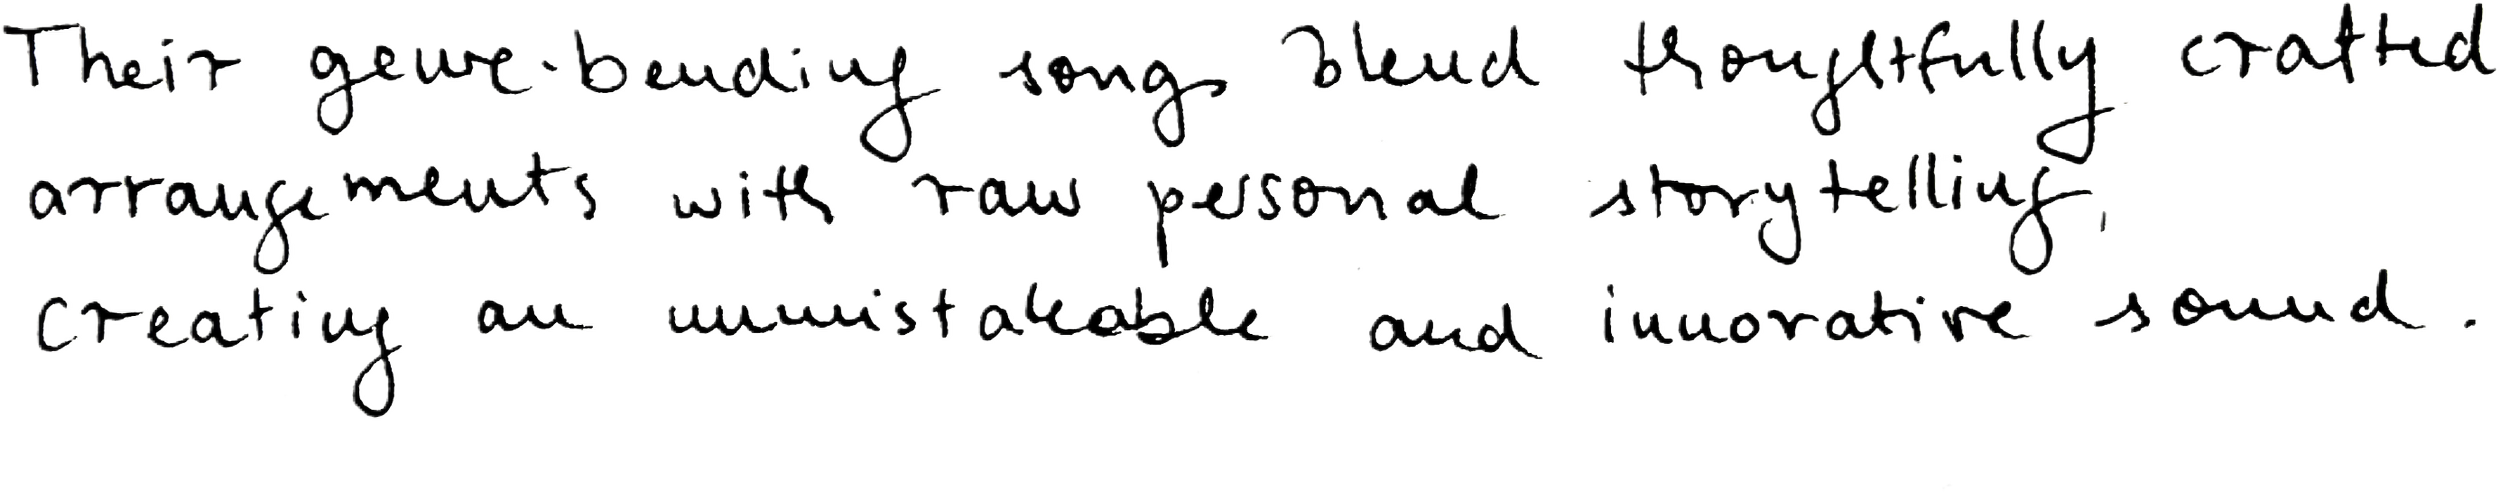 Their genre-bending songs blend thoughtfully crafted
arrangements with raw personal storytelling,
creating an unmistakable and innovative sound.